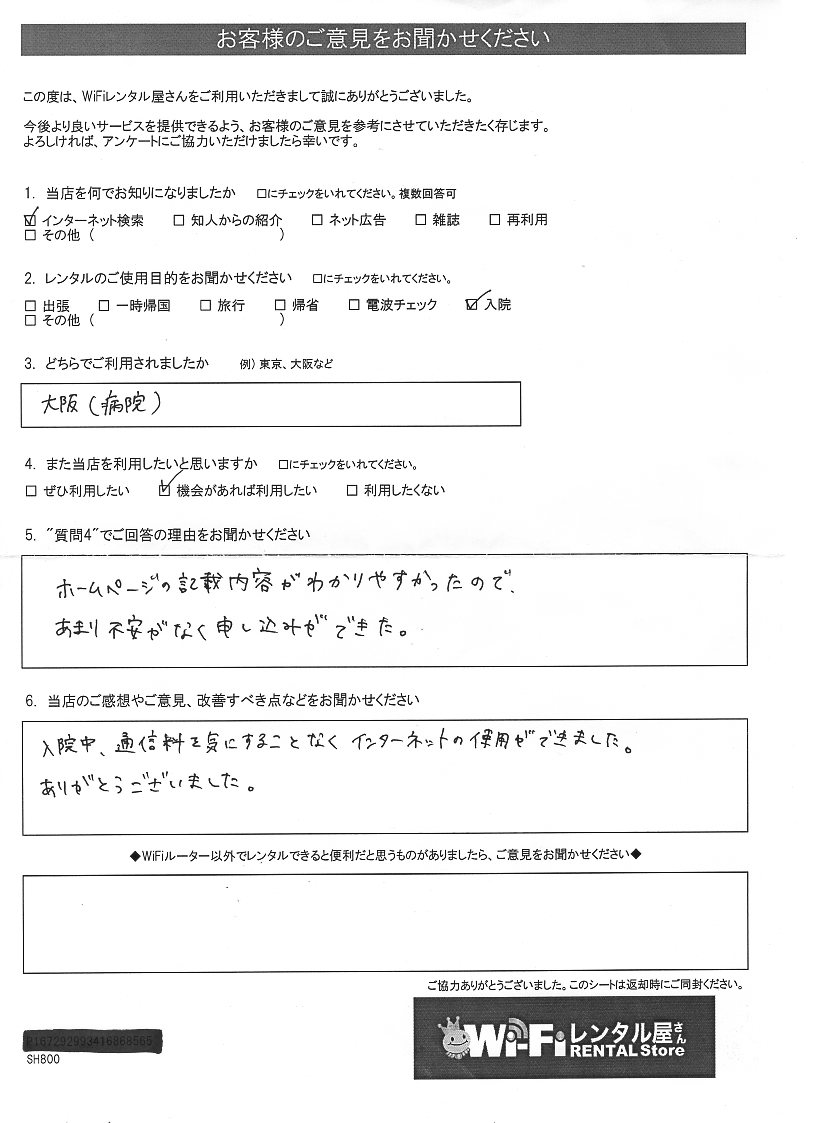 お客様のご意見をお聞かせください
この度は、WiFiレンタル屋さんをご利用いただきまして誠にありがとうございました。
今後より良いサービスを提供できるよう、お客様のご意見を参考にさせていただきたく存じます。
よろしければ、アンケートにご協力いただけましたら幸いです。
1. 当店を何でお知りになりましたか □にチェックをいれてください。複数回答可
☑ インターネット検索 □ 知人からの紹介 □ ネット広告 □ 雑誌 □ 再利用
□ その他 ( )
2. レンタルのご使用目的をお聞かせください □にチェックをいれてください。
□ 出張 □ 一時帰国 □ 旅行 □ 帰省 □ 電波チェック ☑ 入院
□ その他 ( )
3. どちらでご利用されましたか 例) 東京、大阪など
大阪(病院)
4. また当店を利用したいと思いますか □にチェックをいれてください。
□ ぜひ利用したい ☑ 機会があれば利用したい □ 利用したくない
5. "質問4"でご回答の理由をお聞かせください
ホームページの記載内容がわかりやすかったので、
あまり不安がなく申し込みができた。
6. 当店のご感想やご意見、改善すべき点などをお聞かせください
入院中、通信料を気にすることなくインターネットの使用ができました。
ありがとうございました。
◆WiFiルーター以外でレンタルできると便利だと思うものがありましたら、ご意見をお聞かせください◆
ご協力ありがとうございました。このシートは返却時にご同封ください。
Wi-Fiレンタル屋さん
RENTAL Store
SH800